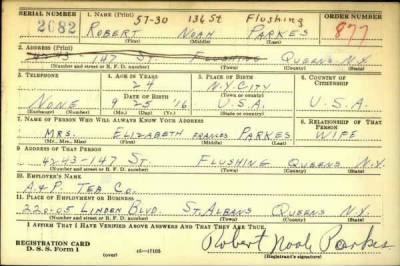 SERIAL NUMBER 1. NAME (Print) 57-30 136 St Flushing ORDER NUMBER
2682 ROBERT NOAH PARKES 877
(First) (Middle) (Last)
2. ADDRESS (Print)
42-43 - 147 ST. FLUSHING QUEENS N.Y.
(Number and street or R. F. D. number) (Town) (County) (State)
3. TELEPHONE 4. AGE IN YEARS 5. PLACE OF BIRTH 6. COUNTRY OF CITIZENSHIP
24 N.Y. CITY
DATE OF BIRTH (Town or county)
NONE 9 25 '16 U.S.A. U.S.A.
(Exchange) (Number) (Mo.) (Day) (Yr.) (State or country)
7. NAME OF PERSON WHO WILL ALWAYS KNOW YOUR ADDRESS 8. RELATIONSHIP OF THAT PERSON
MRS. ELIZABETH FRANCES PARKES WIFE
(Mr., Mrs., Miss) (First) (Middle) (Last)
9. ADDRESS OF THAT PERSON
42-43-147 ST. FLUSHING QUEENS N.Y.
(Number and street or R. F. D. number) (Town) (County) (State)
10. EMPLOYER'S NAME
A.&P. TEA CO.
11. PLACE OF EMPLOYMENT OR BUSINESS
220-05 LINDEN BLVD. ST. ALBANS QUEENS N.Y.
(Number and street or R. F. D. number) (Town) (County) (State)
I AFFIRM THAT I HAVE VERIFIED ABOVE ANSWERS AND THAT THEY ARE TRUE.
REGISTRATION CARD
D. S. S. Form 1 (over) 16-17105 Robert Noah Parkes
(Registrant's signature)